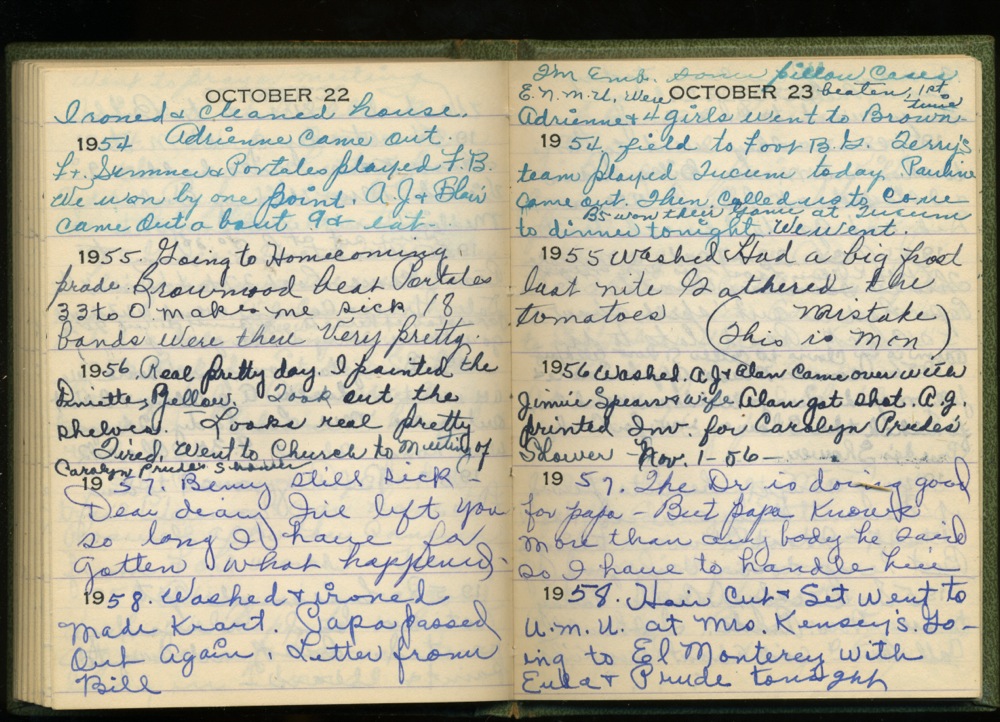 OCTOBER 22
Ironed & Cleaned house.
1954 Adrienne Came out.
Ft. Sumner & Portales played F.B.
We won by one point. A.J & Blair
came out a bout 9 & eat.
1955. Going to Homecoming
prade. Brownwood beat Portales
33 to 0. makes me sick 18
bands were there Very pretty.
1956. Real pretty day. I painted the
Diniette, Yellow. Took out the
shelves. Looks real pretty
Tired, Went to Church to Meeting of
Carolyn Prude's Shower
1957. Benny still sick -
Dear diary I've left you
so long I have for
gotten what happened.
1958. Washed & ironed
Made Kraut. Papa passed
Out Again. Letter from
Bill
I'm Emb. some pillow Cases
E.N.M.U. were beaten, 1st time
OCTOBER 23
Adrienne & 4 girls went to Brown-
1954 field to Foot B. G. Terry's
team played Tucum today Pauline
came out. Then Called us to Come
B5 won their game at Tucum
to dinner tonight. We went.
1955 Washed Had a big frost
last nite Gathered the
tomatoes (Mistake
This is Mon)
1956 Washed. A.J & Alan came over with
Jimmie Spears & wife Alan got shot. A.J.
printed Inv. for Carolyn Prudes'
Shower Nov. 1-56-
1957. The Dr is doing good
for papa - But papa Knows
More than any body he said
so I have to handle him
1958. Hair Cut & Set Went to
W.M.U. at Mrs. Kensey's. Go-
ing to El Monterey with
Eula & Prude tonight